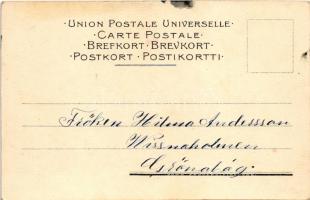 ·UNION POSTALE UNIVERSELLE·
·CARTE POSTALE·
·BREFKORT·BREVKORT·
·POSTKORT·POSTIKORTTI·
Fröken Hilma Andersson